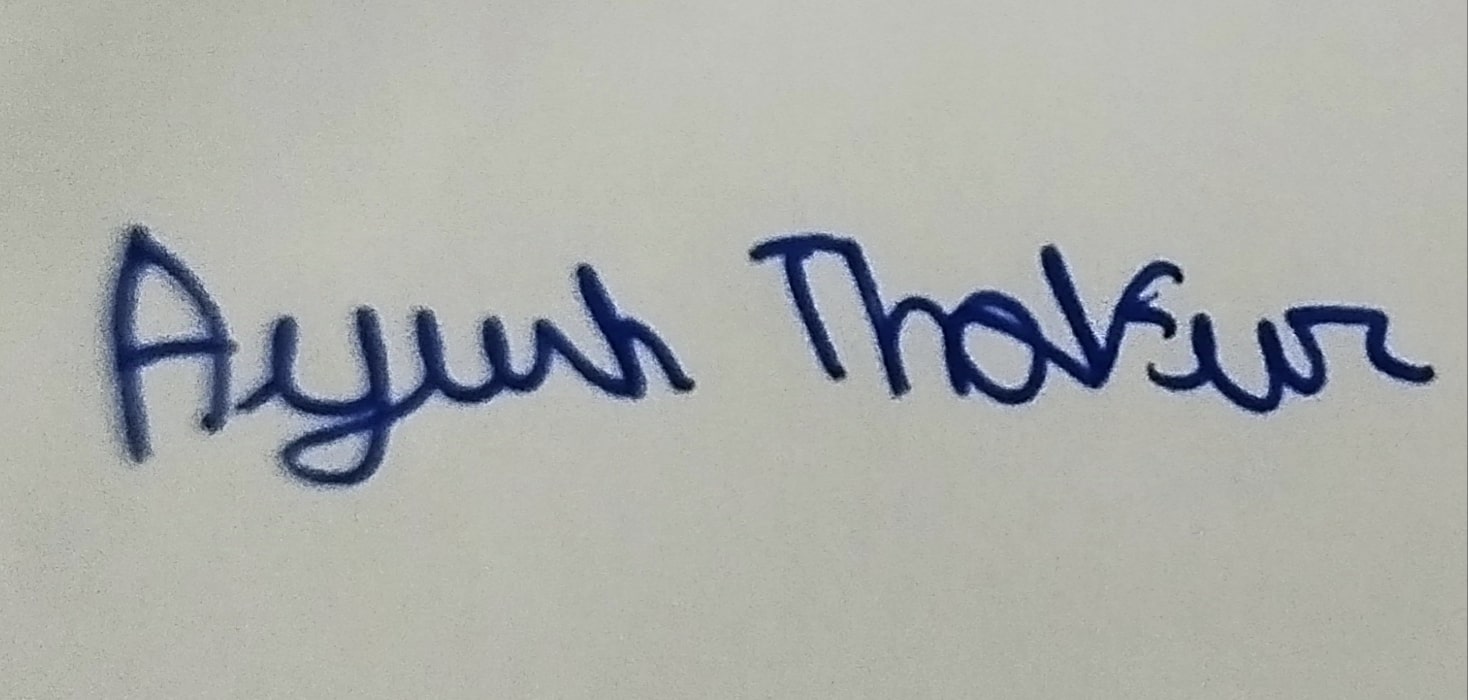 Ayush Thakur